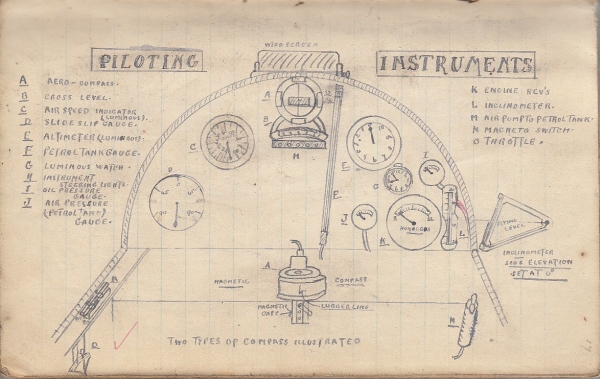 PILOTING
WIND SCREEN
INSTRUMENTS
A AERO-COMPASS.
B CROSS LEVEL.
C AIR SPEED INDICATOR
(LUMINOUS).
D SLIDE SLIP GAUGE.
E ALTIMETER (LUMINOUS).
F PETROL TANK GAUGE.
G LUMINOUS WATCH.
H INSTRUMENT
STEERING LIGHTS.
I OIL PRESSURE
GAUGE.
J AIR PRESSURE
(PETROL TANK)
GAUGE.
K ENGINE REV'S
L INCLINOMETER.
M AIR PUMP TO PETROL TANK.
N MAGNETO SWITCH.
O THROTTLE.
A
B
C
H
E
I
G
D
F
J
K
L
HUNDREDS
FLYING
LEVEL
INCLINOMETER
SIDE ELEVATION
SET AT 0°
A
MAGNETIC
COMPASS
MAGNETIC
CARD
LUBBER LINE
N
TWO TYPES OF COMPASS ILLUSTRATED